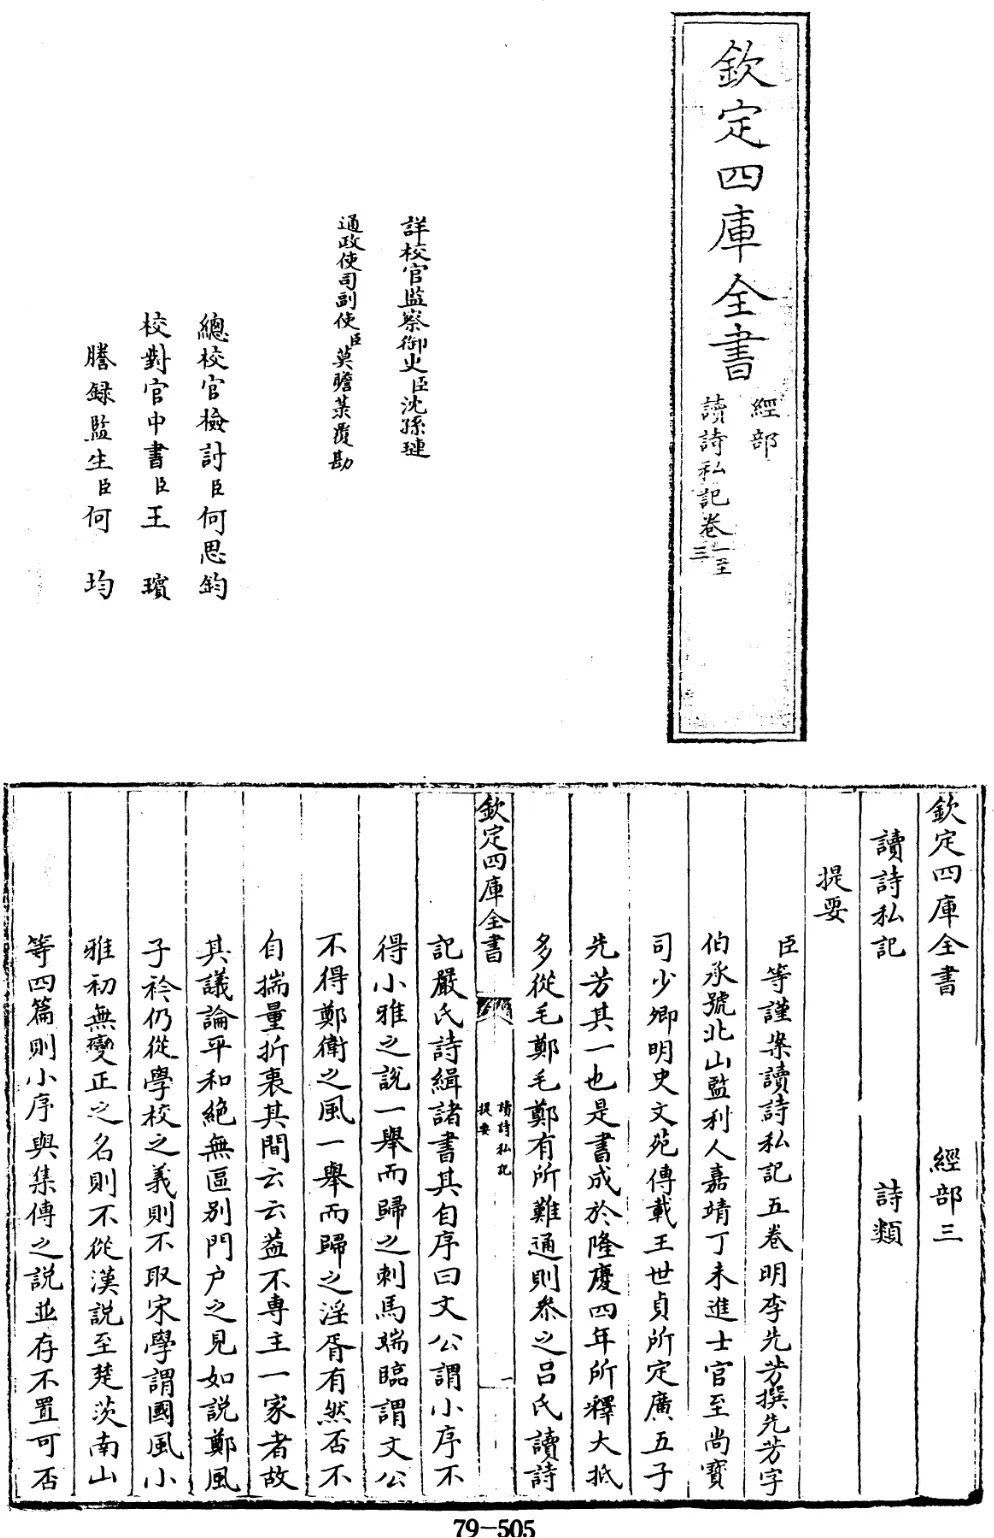 欽定四庫全書
經部
讀詩私記卷一至三
詳校官監察御史臣沈孫璉
通政使司副使臣莫瞻菉覆勘
總校官檢討臣何思鈞
校對官中書臣王瓆
謄錄監生臣何均
欽定四庫全書 經部三
讀詩私記 詩類
提要
臣等謹案讀詩私記五卷明李先芳撰先芳字
伯承號北山監利人嘉靖丁未進士官至尚寶
司少卿明史文苑傳載王世貞所定廣五子
先芳其一也是書成於隆慶四年所釋大抵
多從毛鄭毛鄭有所難通則叅之呂氏讀詩
欽定四庫全書
讀詩私記
提要
一
記嚴氏詩緝諸書其自序曰文公謂小序不
得小雅之說一舉而歸之刺馬端臨謂文公
不得鄭衛之風一舉而歸之淫胥有然否不
自揣量折衷其間云云葢不專主一家者故
其議論平和絶無區别門户之見如說鄭風
子衿仍從學校之義則不取宋學謂國風小
雅初無變正之名則不從漢說至楚茨南山
等四篇則小序與集傳之說並存不置可否
79-505